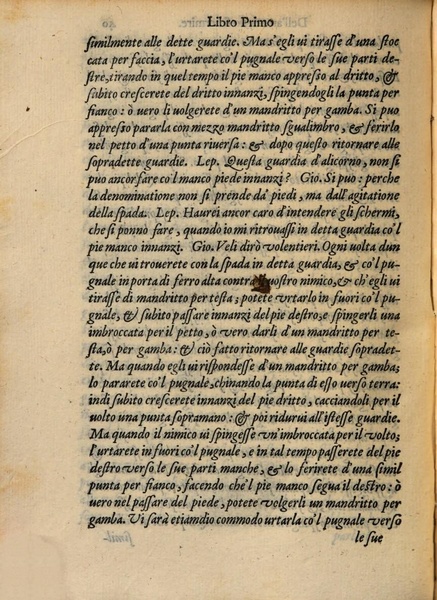 Libro Primo
similmente alle dette guardie. Ma s'egli ui tirasse d'una stoc
cata per faccia, l'urtarete co'l pugnale verso le sue parti de-
stre, tirando in quel tempo il pie manco appresso al dritto, &
subito crescerete del dritto innanzi, spingendogli la punta per
fianco: ò vero li volgerete d'un mandritto per gamba. Si puo
appresso pararla con mezzo mandritto sgualimbro, & ferirlo
nel petto d'una punta riversa: & dopo questo ritornare alle
sopradette guardie. Lep. Questa guardia d'alicorno, non si
puo ancor fare co'l manco piede innanzi? Gio. Si può: perche
la denominatione non si prende da' piedi, ma dall'agitatione
della spada. Lep. Haurei ancor caro d'intendere gli schermi,
che si ponno fare, quando io mi ritrouassi in detta guardia co'l
pie manco innanzi. Gio. Veli dirò volentieri. Ogni volta dun
que che vi trouerete con la spada in detta guardia, & co'l pu-
gnale in porta di ferro alta contra vostro nimico, & ch'egli ui
tirasse di mandritto per testa; potete vrtarlo in fuori co'l pu-
gnale, & subito passare innanzi del pie destro, e spingerli una
imbroccata per il petto, ò vero darli d'un mandritto per te-
sta, ò per gamba: & ciò fatto ritornare alle guardie sopradet-
te. Ma quando egli ui rispondesse d'un mandritto per gamba;
lo pararete co'l pugnale, chinando la punta di esso verso terra:
indi subito crescerete innanzi del pie dritto, cacciandoli per il
volto una punta sopramano: & poi ridurui all'istesse guardie.
Ma quando il nimico ui spingesse vn'imbroccata per il volto;
l'urtarete in fuori co'l pugnale, e in tal tempo passerete del pie
destro verso le sue parti manche, & lo ferirete d'una simil
punta per fianco, facendo che'l pie manco segua il destro: ò
vero nel passare del piede, potete volgerli un mandritto per
gamba. Vi sarà etiamdio commodo urtarla co'l pugnale verso
le sue